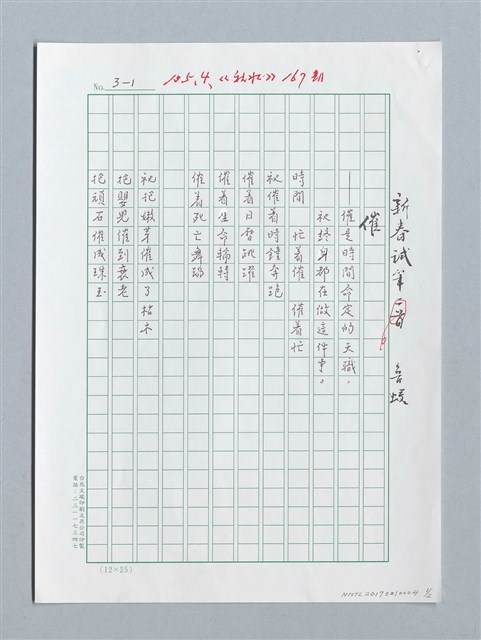 No. 3-1
105、4、《秋水》167期
新春試筆二首 魯蛟
催
──催是時間命定的天職，
祂終身都在做這件事。
時間 忙著催 催著忙
祂催着時鐘奔跑
催着日曆跳躍
催着生命輪轉
催着死亡舞蹈
祂把嫩芽催成了枯木
把嬰兒催到衰老
把頑石催成珠玉
(12×25)
NMTL20170010004 1/2